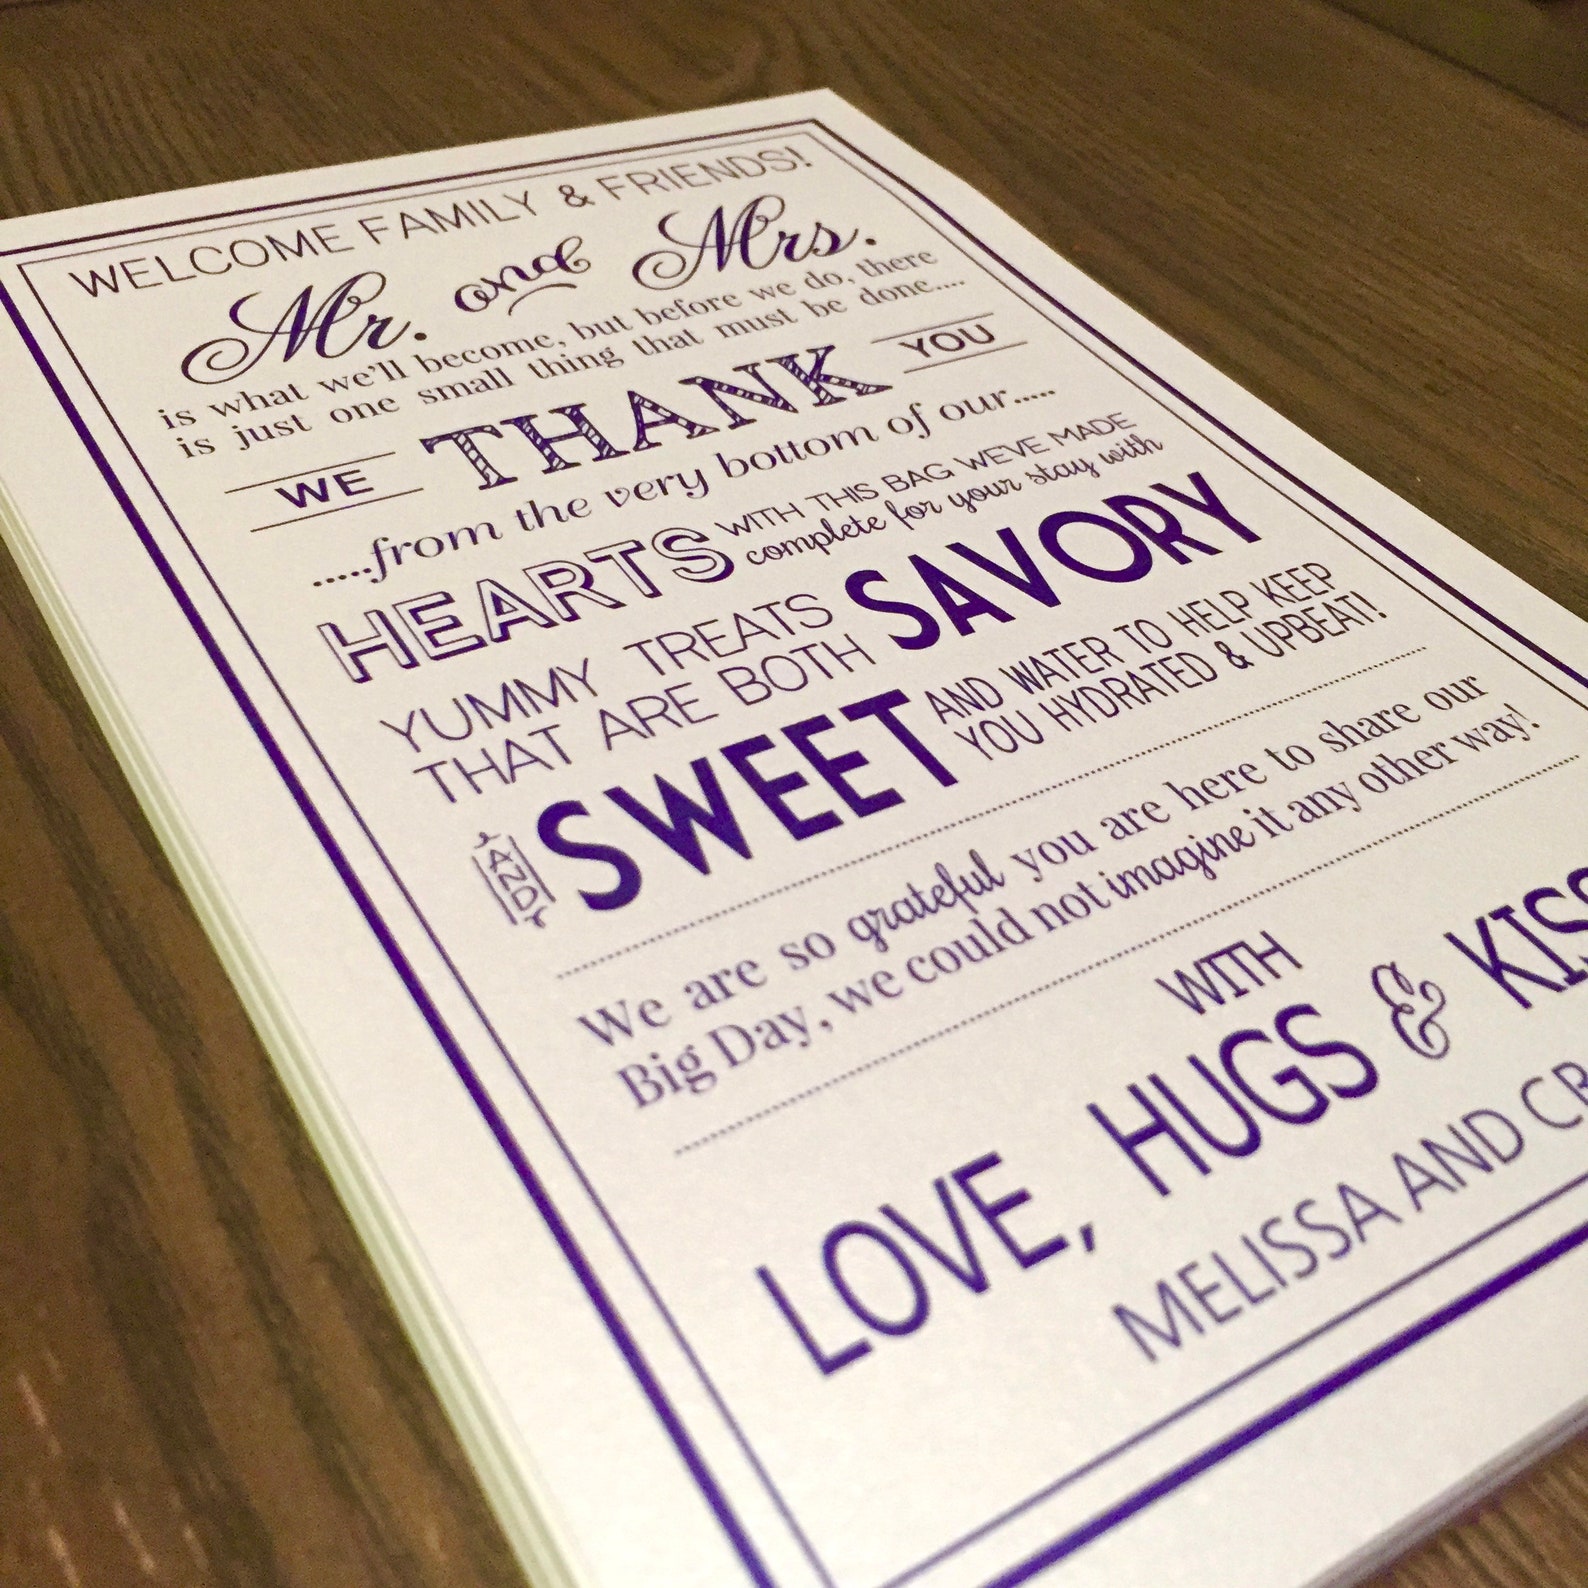 WELCOME FAMILY & FRIENDS!
Mr. and Mrs.
is what we'll become, but before we do, there
is just one small thing that must be done....
WE THANK YOU
.....from the very bottom of our.....
HEARTS WITH THIS BAG WE'VE MADE
complete for your stay with
YUMMY TREATS
THAT ARE BOTH SAVORY
AND SWEET AND WATER TO HELP KEEP
YOU HYDRATED & UPBEAT!
We are so grateful you are here to share our
Big Day, we could not imagine it any other way!
WITH
LOVE, HUGS &
MELISSA AND